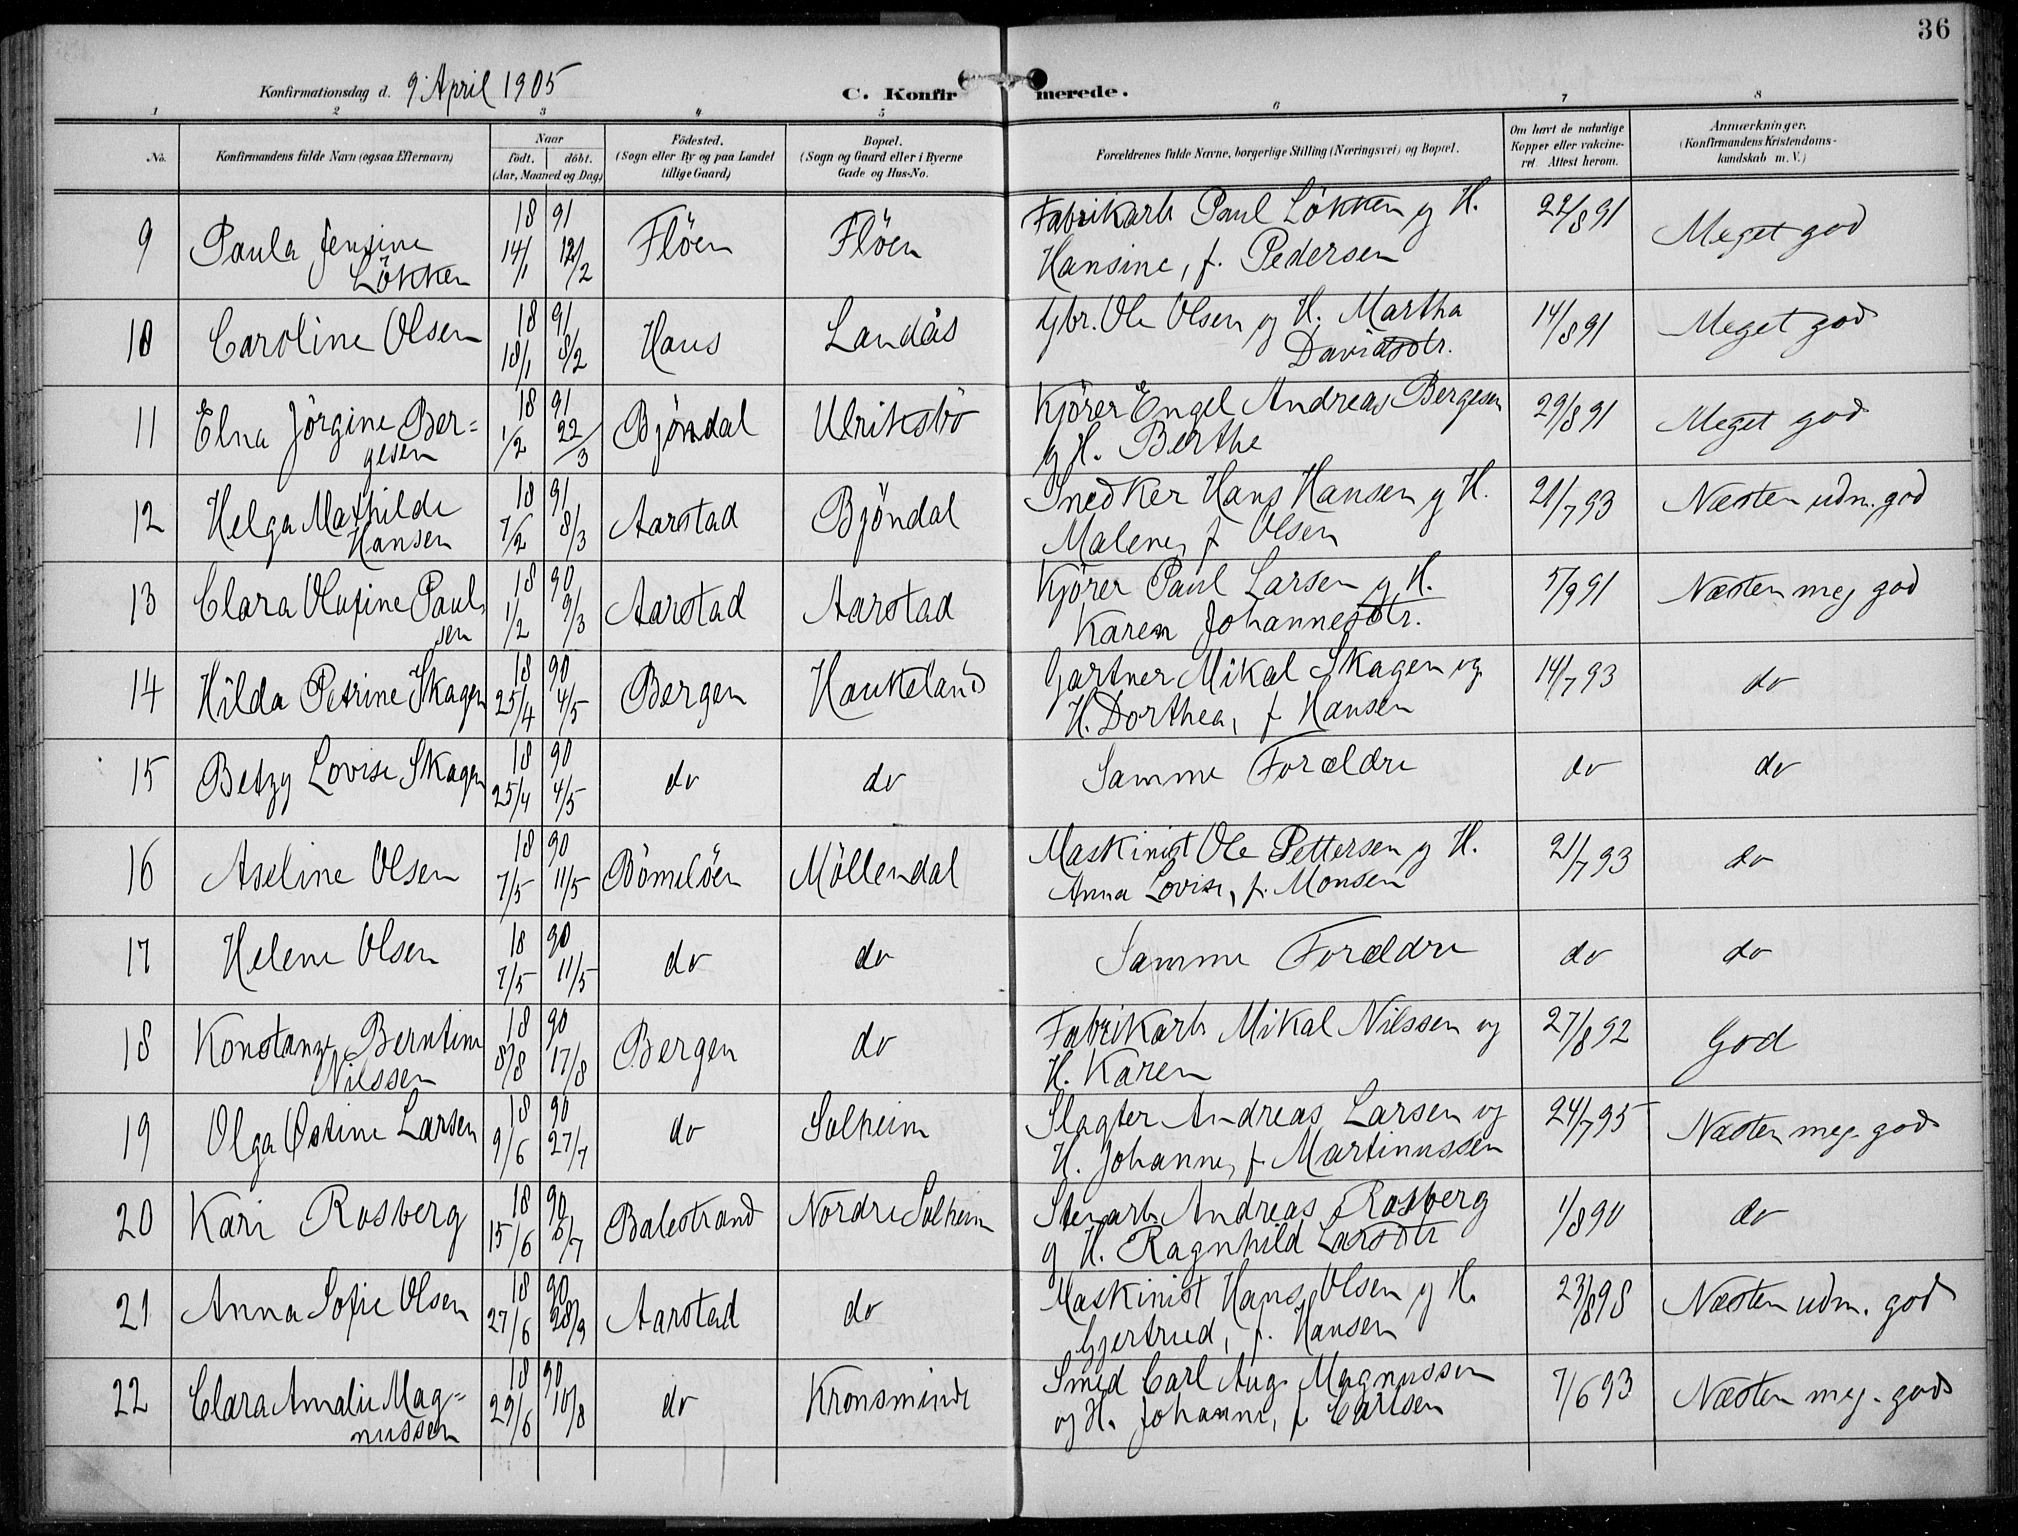 36
Konfirmationsdag d. 9. April 1905
C. Konfirmerede.
1 2 3 4 5 6 7 8
No.
Konfirmandens fulde Navn (ogsaa Efternavn)
Naar
födt. döbt.
(Aar, Maaned og Dag)
Födested.
(Sogn eller By og paa Landet
tillige Gaard)
Bopæl.
(Sogn og Gaard eller i Byerne
Gade og Hus-No.
Forældrenes fulde Navne, borgerlige Stilling (Næringsvei) og Bopæl.
Om havt de naturlige
Kopper eller vakcine-
ret. Attest herom.
Anmærkninger.
(Konfirmandens Kristendoms-
kundskab m. V.)
9 Paula Jensine
Lökken
18 91
14/1 12/2
Flöen Flöen
Fabrikarb Paul Lökken og H.
Hansine, f. Pedersen
22/8 91 Meget god
10 Caroline Olsen
18 91
18/1 8/2
Haus Landås
Gbr. Ole Olsen og H. Martha
Davidsdtr.
14/8 91 Meget god
11 Elna Jörgine Ber=
gesen
18 91
1/2 22/3
Bjöndal Ulriksbö
Kjörer Engel Andreas Bergesen
og H. Berthe
29/8 91 Meget god
12 Helga Mathilde
Hansen
18 91
7/2 8/3
Aarstad Bjöndal
Snedker Hans Hansen og H.
Malene, f Olsen
21/7 93 Næsten udm. god
13 Clara Olufine Paul-
sen
18 90
1/2 9/3
Aarstad Aarstad
Kjörer Paul Larsen og H.
Karen Johannesdtr.
5/9 91 Næsten meg god
14 Hilda Petrine Skagen
18 90
25/4 4/5
Bergen Haukeland
Gartner Mikal Skagen og
H. Dorthea, f Hansen
14/7 93 do
15 Betzy Lovise Skagen
18 90
25/4 4/5
do do
Samme Forældre
do do
16 Aseline Olsen
18 90
7/5 11/5
Bömelöen Möllendal
Maskinist Ole Pettersen og H.
Anna Lovise, f. Monsen
21/7 93 do
17 Helene Olsen
18 90
7/5 11/5
do do
Samme Forældre
do do
18 Konstanze Berntine
Nilssen
18 90
8/8 17/8
Bergen do
Fabrikarb Mikal Nilssen og
H. Karen
27/8 92 God
19 Olga Østine Larsen
18 90
9/6 27/7
do Solheim
Slagter Andreas Larsen og
H. Johanne, f Martinussen
24/7 95 Næsten meg. god
20 Kari Rosberg
18 90
15/6 6/7
Balestrand Nordre Solheim
Stenarb. Andreas Rosberg
og H. Ragnhild Larsdtr
1/8 90 do
21 Anna Sofie Olsen
18 90
27/6 28/9
Aarstad do
Maskinist Hans Olsen og H.
Gjertrud, f. Hansen
23/8 98 Næsten udm. god
22 Clara Amalie Mag=
nussen
18 90
29/6 10/8
do Kronsminde
Smed Carl Aug. Magnussen
og H. Johanne, f Carlsen
7/6 93 Næsten meg. god